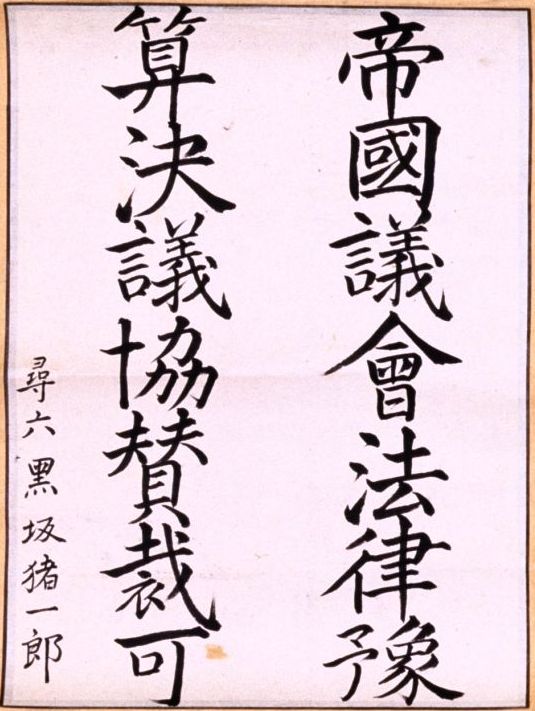 帝國議會法律豫
算決議協賛裁可
尋六黒坂猪一郎